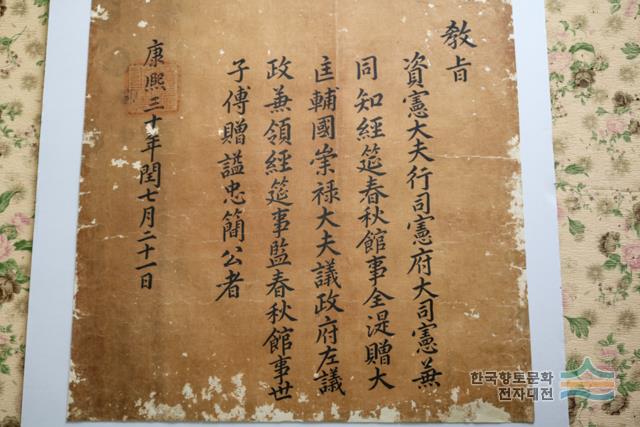 敎旨
資憲大夫行司憲府大司憲兼
同知經筵春秋館事金湜贈大
匡輔國崇祿大夫議政府左議
政兼領經筵事監春秋館事世
子傅贈謚忠簡公者
康熙三十年閏七月二十一日
한국향토문화
전자대전